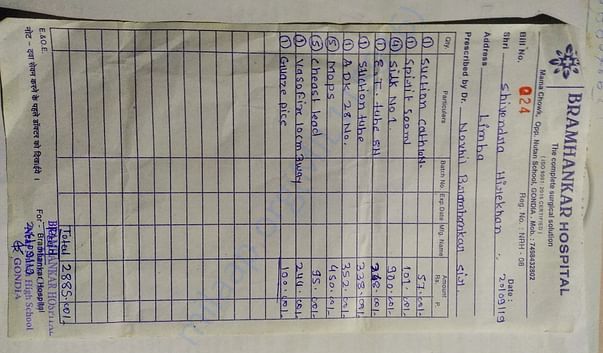 BRAMHANKAR HOSPITAL
The complete surgical solution
(ISO 9001 : 2015 CERTIFIED)
Mama Chowk, Opp. Nutan School, GONDIA, Mob. : 7498432802
Bill No. 024 Reg. No. : NRH - 08 Date :
Shri Shivendra Hirekhan 20/09/19
Address Limba
Prescribed by Dr. Bramhankar sir
Qty. Particulars Batch No. Exp. Date Mfg. Name Amount Rs. P.
① Suction cathion. 57.00/-
① Spirit 500ml 101.00/-
④ Silk No 1. 900.00/-
① R.T. tube 54 00/-
① Suction tube 338.00/-
① ADK 28 No. 352.00/-
⑤ Mops 450.00/-
⑤ Cheast lead 95.00/-
② Vasofix 10cm 3way 244.00/-
① Guaze pice 100.00/-
Total 2885.00/-
E.&O.E.
नोट - दवा सेवन करने के पहले डॉक्टर को दिखाईये ।
For - Bramhankar Hospital
BRAMHANKAR HOSPITAL
High School
GONDIA